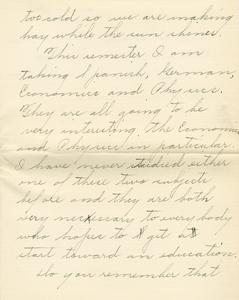 too cold so we are making
hay while the sun shines.
This semester I am
taking Spanish, German,
Economics and Physics.
They are all going to be
very interesting, the Economics
and Physics in particular.
I have never studied either
one of these two subjects
before and they are both
very necessary to everybody
who hopes to get a
start toward an education.
Do you remember that